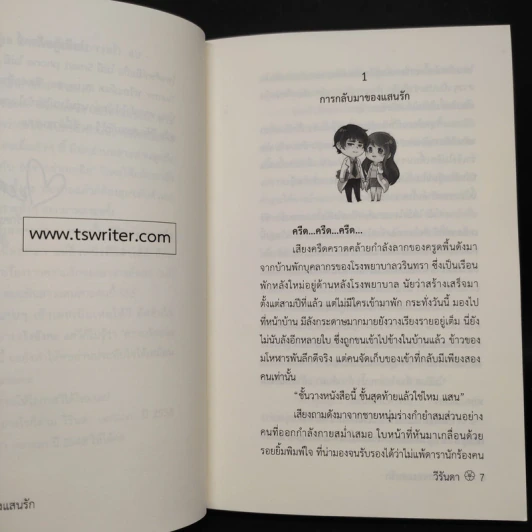 www.tswriter.com
งแสนรัก
1
การกลับมาของแสนรัก
ครืด...ครืด...ครืด...
เสียงครืดคราดคล้ายกำลังลากของครูดพื้นดังมา
จากบ้านพักบุคลากรของโรงพยาบาลวรินทรา ซึ่งเป็นเรือน
พักหลังใหม่อยู่ด้านหลังโรงพยาบาล นัยว่าสร้างเสร็จมา
ตั้งแต่สามปีที่แล้ว แต่ไม่มีใครเข้ามาพัก กระทั่งวันนี้ มองไป
ที่หน้าบ้าน มีลังกระดาษมากมายยังวางเรียงรายอยู่เต็ม นี่ยัง
ไม่นับลังอีกหลายใบ ซึ่งถูกขนเข้าไปข้างในบ้านแล้ว ข้าวของ
มโหฬารพันลึกดีจริง แต่คนจัดเก็บของเข้าที่กลับมีเพียงสอง
คนเท่านั้น
“ชั้นวางหนังสือนี้ ชั้นสุดท้ายแล้วใช่ไหม แสน”
เสียงถามดังมาจากชายหนุ่มร่างกำยำสมส่วนอย่าง
คนที่ออกกำลังกายสม่ำเสมอ ใบหน้าที่หันมาเกลื่อนด้วย
รอยยิ้มพิมพ์ใจ ที่น่ามองจนรับรองได้ว่าไม่แพ้ดารานักร้องคน
วีรันดา 7